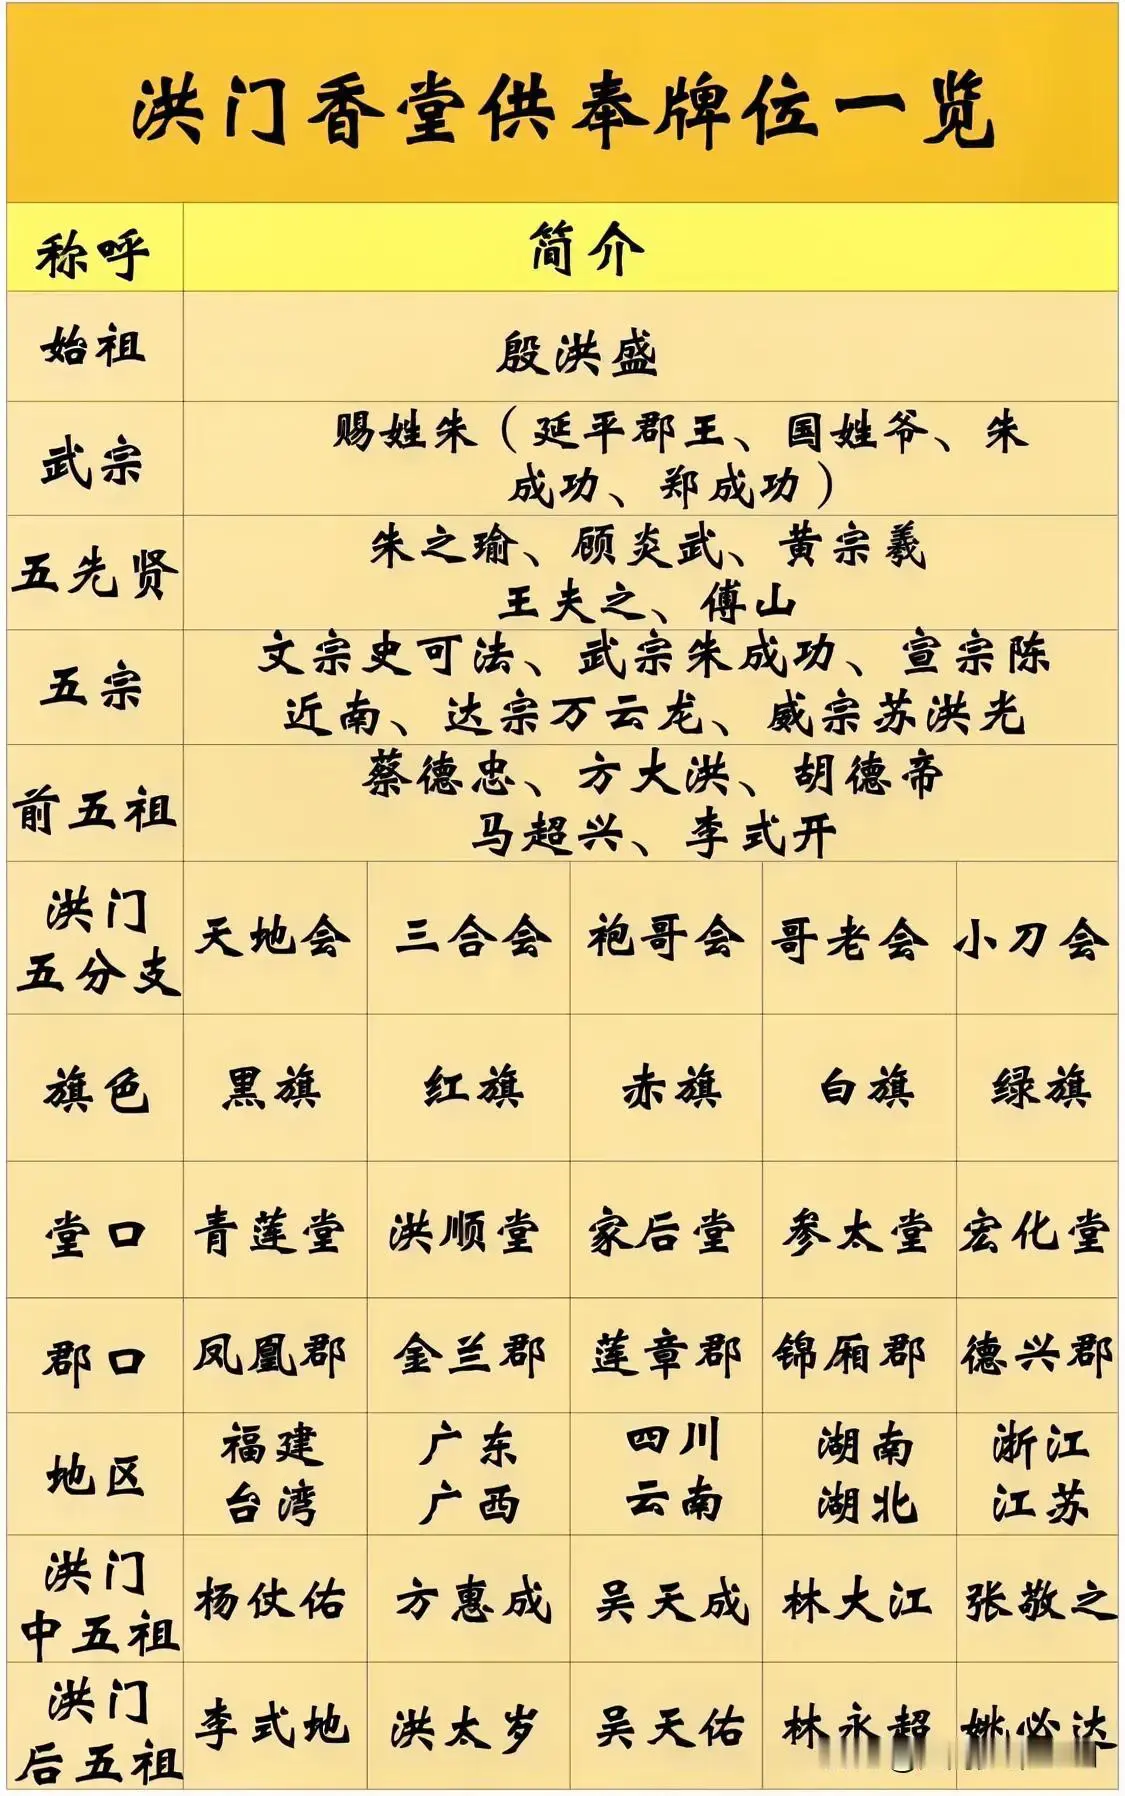 洪门香堂供奉牌位一览
称呼 简介
始祖 殷洪盛
武宗 赐姓朱（延平郡王、国姓爷、朱
成功、郑成功）
五先贤 朱之瑜、顾炎武、黄宗羲
王夫之、傅山
五宗 文宗史可法、武宗朱成功、宣宗陈
近南、达宗万云龙、威宗苏洪光
前五祖 蔡德忠、方大洪、胡德帝
马超兴、李式开
洪门
五分支 天地会 三合会 袍哥会 哥老会 小刀会
旗色 黑旗 红旗 赤旗 白旗 绿旗
堂口 青莲堂 洪顺堂 家后堂 参太堂 宏化堂
郡口 凤凰郡 金兰郡 莲章郡 锦厢郡 德兴郡
地区 福建 广东 四川 湖南 浙江
台湾 广西 云南 湖北 江苏
洪门
中五祖 杨仗佑 方惠成 吴天成 林大江 张敬之
洪门
后五祖 李式地 洪太岁 吴天佑 林永超 姚必达